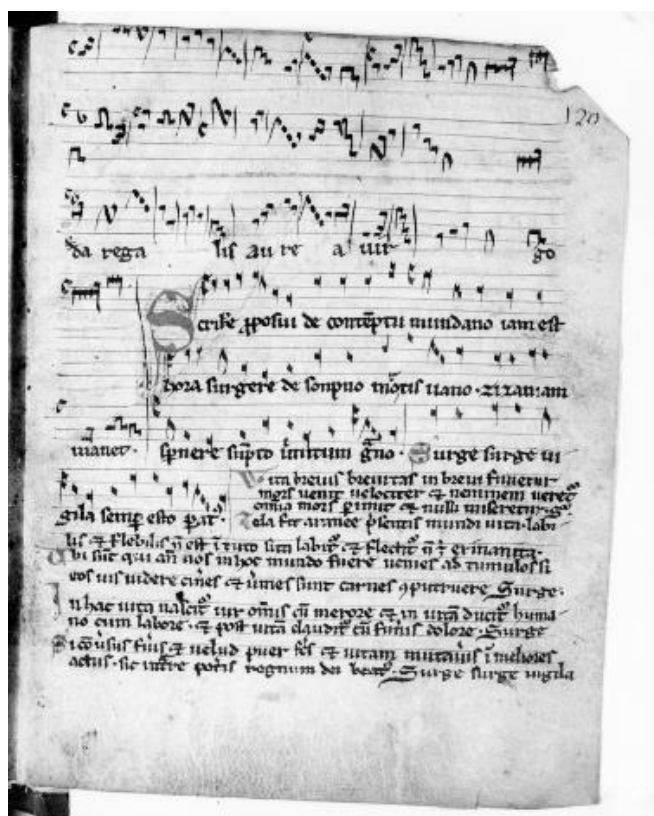 120
da rega lis au re a vir go
Scribere pposui de conteptu mundano iam est
hora surgere de sonpno mortis uano. zizaniam
manet. spnere supto Surge surge ui
gila semp esto pat9.
Vita brevis breuitas in brevi finietur
mors venit velociter et neminem veret
omnia mors pimit et nulli miseretur.
Tela fit aranee psentis mundi vita. labi
lis et flebilis
Vbi sunt qui an nos in hoc mundo fuere venies ad tumulos si
eos vis videre cineres et vmes sunt carnes 9putruere Surge.
In hac vita nascit vir omis cu merore et in vita ducit huma
no cum labore. et post vita claudit cu funis dolore. Surge
Si 9usus fuis et velud puer fcs et vitam mutauis i meliores
actus. sic intre potis regnum dei beat9. Surge surge vigila